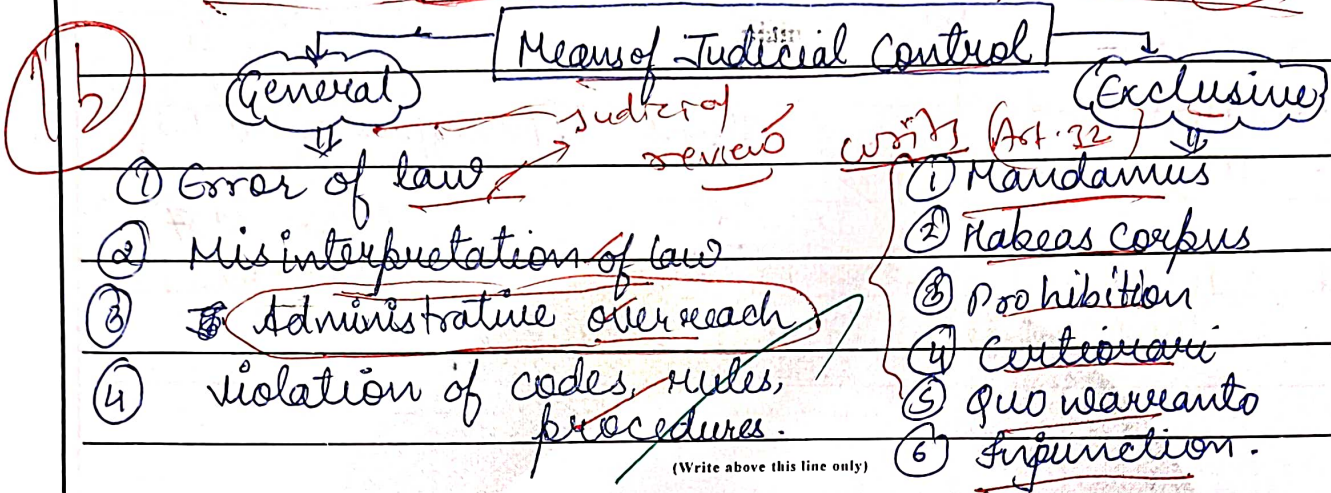 Means of Judicial Control
General
Exclusive
Judicial
review
writs (Art. 32)
① Error of law
② Misinterpretation of law
③ Administrative overreach
④ violation of codes, rules,
procedures.
① Mandamus
② Habeas corpus
③ Prohibition
④ Certiorari
⑤ Quo warranto
⑥ Injunction.
(Write above this line only)